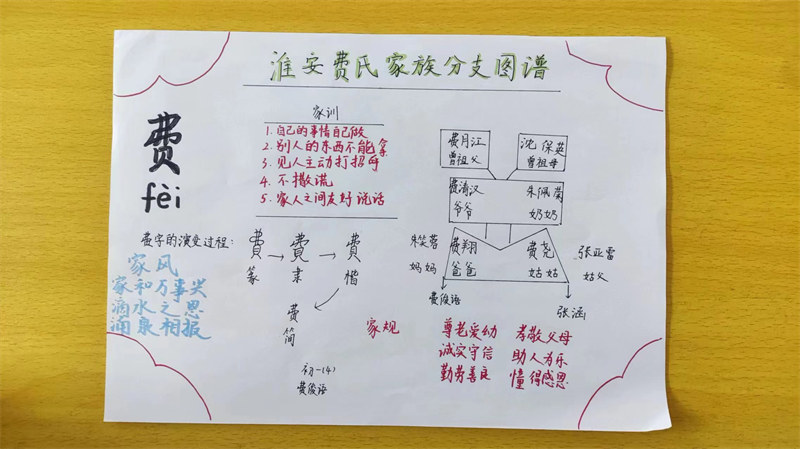 淮安费氏家族分支图谱
费
fèi
家训
1. 自己的事情自己做
2. 别人的东西不能拿
3. 见人主动打招呼
4. 不撒谎
5. 家人之间友好说话
费月江
曾祖父
沈保英
曾祖母
费清汉
爷爷
朱佩菊
奶奶
朱笑蓉
妈妈
费翔
爸爸
费尧
姑姑
张亚雷
姑父
费俊语
张涵
费字的演变过程:
费 费 费
篆 隶 楷
费
简
家风
家和万事兴
滴水之恩
涌泉相报
家规
尊老爱幼 孝敬父母
诚实守信 助人为乐
勤劳善良 懂得感恩
初一(4)
费俊语